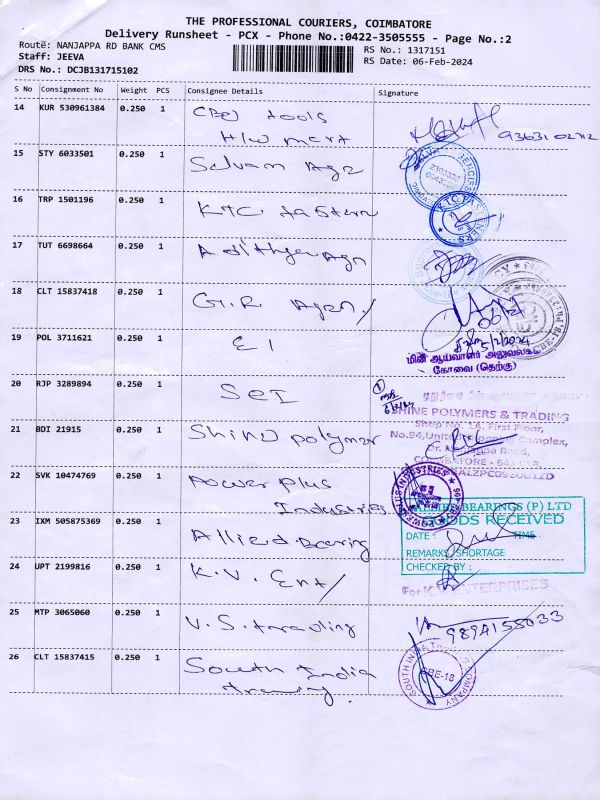 THE PROFESSIONAL COURIERS, COIMBATORE
Delivery Runsheet - PCX - Phone No.:0422-3505555 - Page No.:2
Route: NANJAPPA RD BANK CMS
RS No.: 1317151
Staff: JEEVA
RS Date: 06-Feb-2024
DRS No.: DCJB131715102
S No Consignment No Weight PCS Consignee Details Signature
14 KUR 530961384 0.250 1 tools
H/w mart 9363102712
15 STY 6033501 0.250 1 Selvam Age
16 TRP 1501196 0.250 1 KTC
17 TUT 6698664 0.250 1 Adithya Agn
18 CLT 15837418 0.250 1 G.R Agen/
19 POL 3711621 0.250 1 EI
5/2/2024
மின் ஆய்வாளர் அலுவலகம்
கோவை (தெற்கு)
20 RJP 3289894 0.250 1 SeI
21 BDI 21915 0.250 1 Shine polymer
SHINE POLYMERS & TRADING
Shop No. 14, First Floor,
Complex,
COIMBATORE
22 SVK 10474769 0.250 1 Power Plus
Industries
23 IXM 505875369 0.250 1 Allied Bearing
ALLIED BEARINGS (P) LTD
GOODS RECEIVED
DATE : TIME
REMARKS/SHORTAGE
CHECKED BY :
24 UPT 2199816 0.250 1 K.V. Ent/
For K.V. ENTERPRISES
25 MTP 3065060 0.250 1 V.S. trading
9894155033
26 CLT 15837415 0.250 1 South India
SOUTH INDIA COMPANY
CBE-18